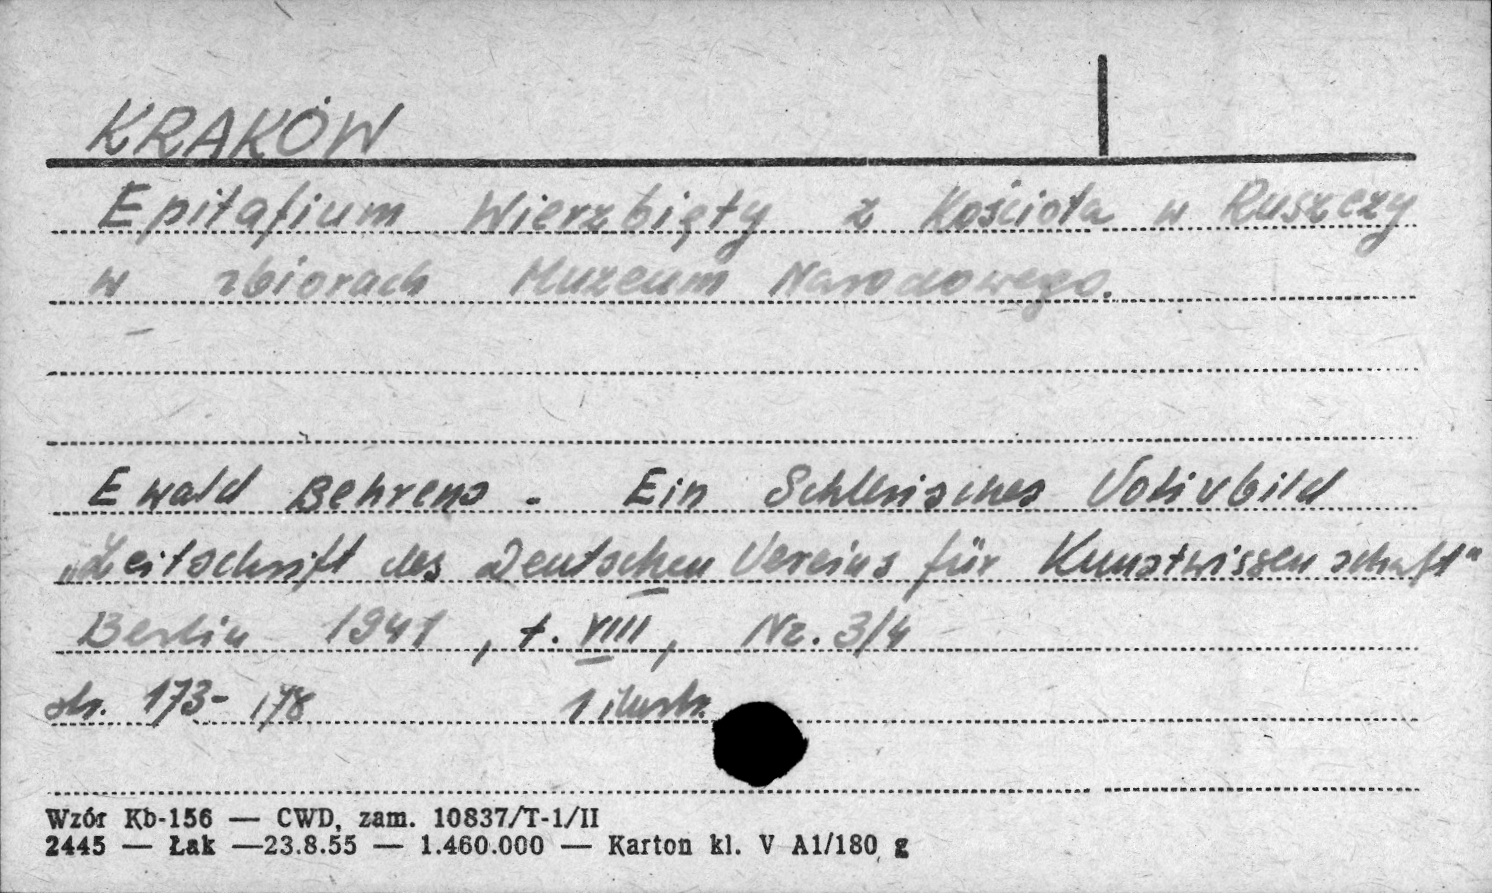 KRAKÓW
Epitafium Wierzbięty z Kościoła w Ruszczy
w zbiorach Muzeum Narodowego.
Ewald Behrens - Ein Schlesisches Votivbild
„Zeitschrift des Deutschen Vereins für Kunstwissenschaft"
Berlin 1941, t. VIII, Nr. 3/4
str. 173-178 1 ilustr.
Wzór Kb-156 — CWD, zam. 10837/T-1/II
2445 — Łak —23.8.55 — 1.460.000 — Karton kl. V A1/180 g